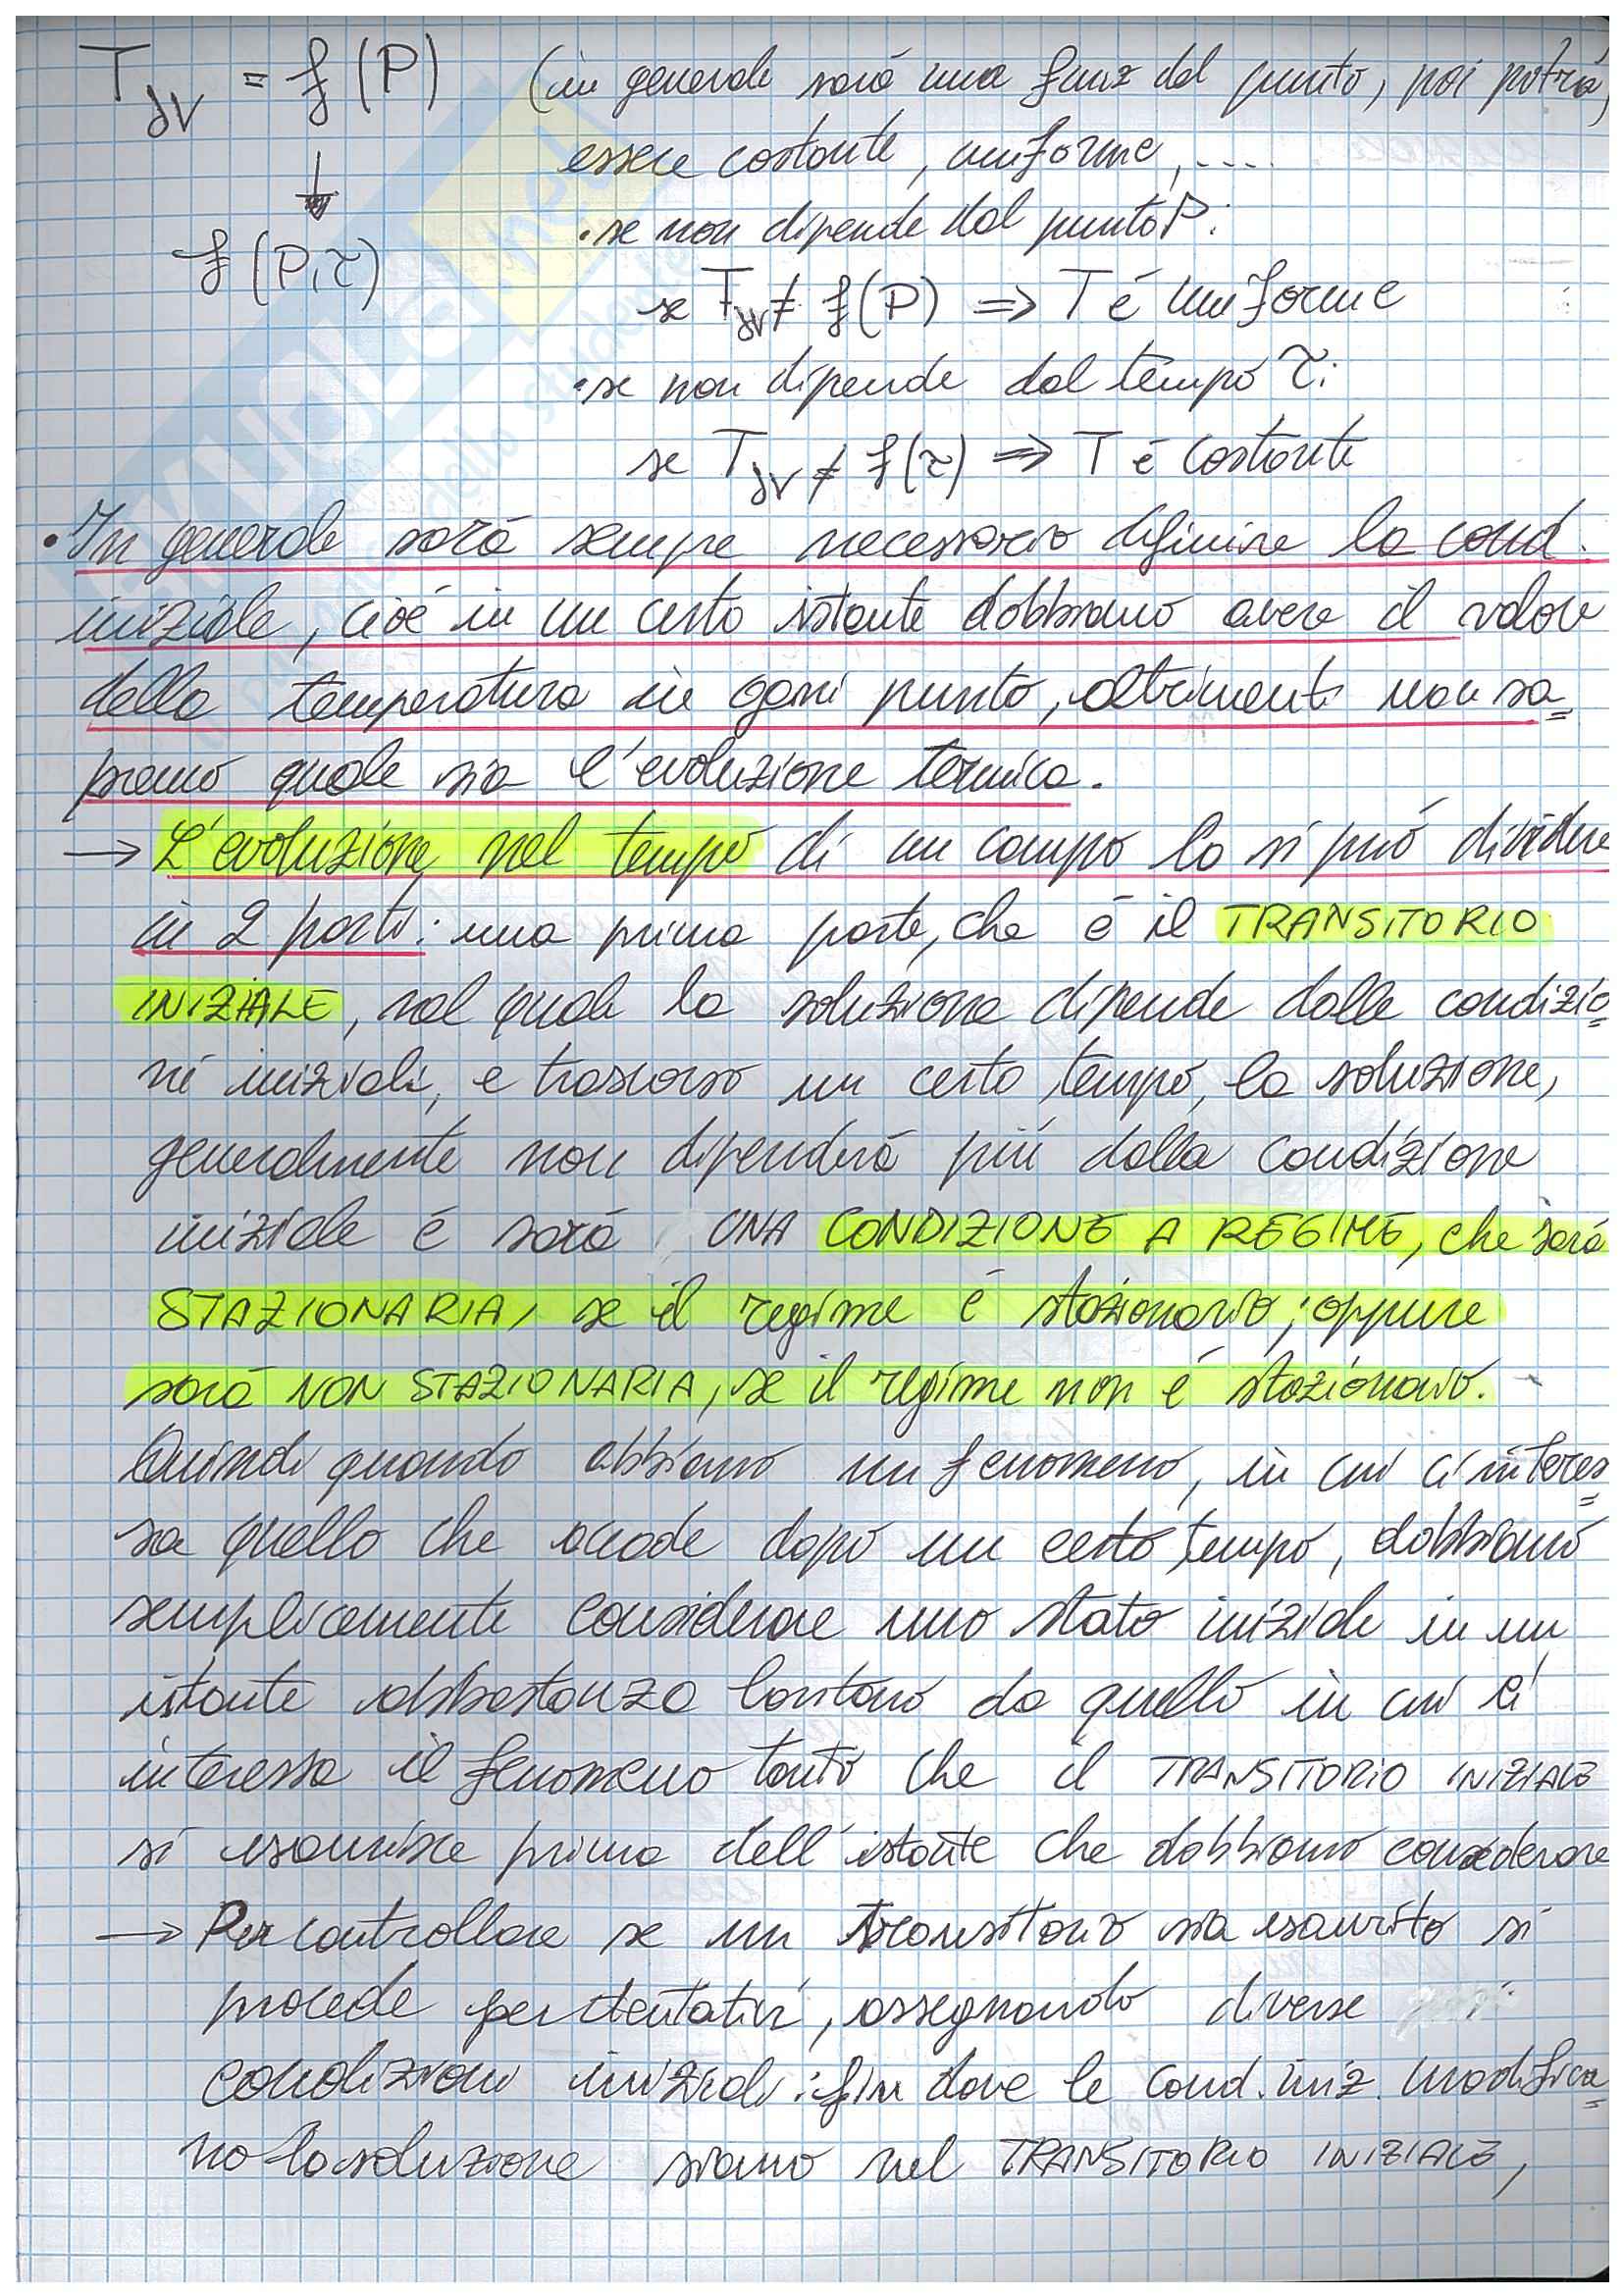 T∂V = f(P) (in generale sará una funz del punto, poi potrá,
↓ essere costante, uniforme, ....
f(P,τ) • se non dipende dal punto P:
se T∂V ≠ f(P) => T é uniforme
• se non dipende dal tempo τ:
se T∂V ≠ f(τ) => T é costante
• In generale sará sempre necessario definire la cond.
iniziale, cioé in un certo istante dobbiamo avere il valore
della temperatura in ogni punto, altrimenti non sa=
premo quale sia l'evoluzione termica.
→ L'evoluzione nel tempo di un campo la si puó dividere
in 2 parti: una prima parte, che é il TRANSITORIO
INIZIALE, nel quale la soluzione dipende dalle condizio=
ni iniziali, e trascorso un certo tempo, la soluzione,
generalmente non dipenderá piú dalla condizione
iniziale é sará UNA CONDIZIONE A REGIME, che sará
STAZIONARIA, se il regime é stazionario; oppure
sará NON STAZIONARIA, se il regime non é stazionario.
Quindi quando abbiamo un fenomeno, in cui ci interes=
sa quello che accade dopo un certo tempo, dobbiamo
semplicemente considerare uno stato iniziale in un
istante abbastanza lontano da quello in cui ci
interessa il fenomeno tanto che il TRANSITORIO INIZIALE
si esaurisce prima dell'istante che dobbiamo considerare
→ Per controllare se un transitorio sia esaurito si
procede per tentativi, assegnando diverse
condizioni iniziali: fin dove le cond. iniz. modifica=
no la soluzione siamo nel TRANSITORIO INIZIALE,